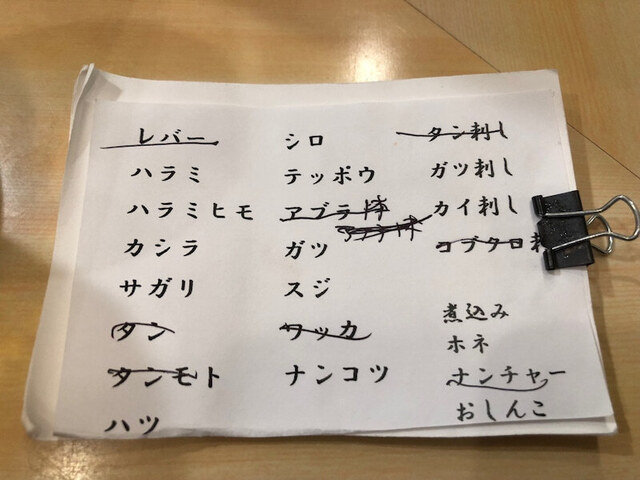 レバー
ハラミ
ハラミヒモ
カシラ
サガリ
タン
タンモト
ハツ
シロ
テッポウ
アブラ
ガツ
スジ
ワッカ
ナンコツ
タン刺し
ガツ刺し
カイ刺し
コブクロ刺
煮込み
ホネ
ナンチャー
おしんこ